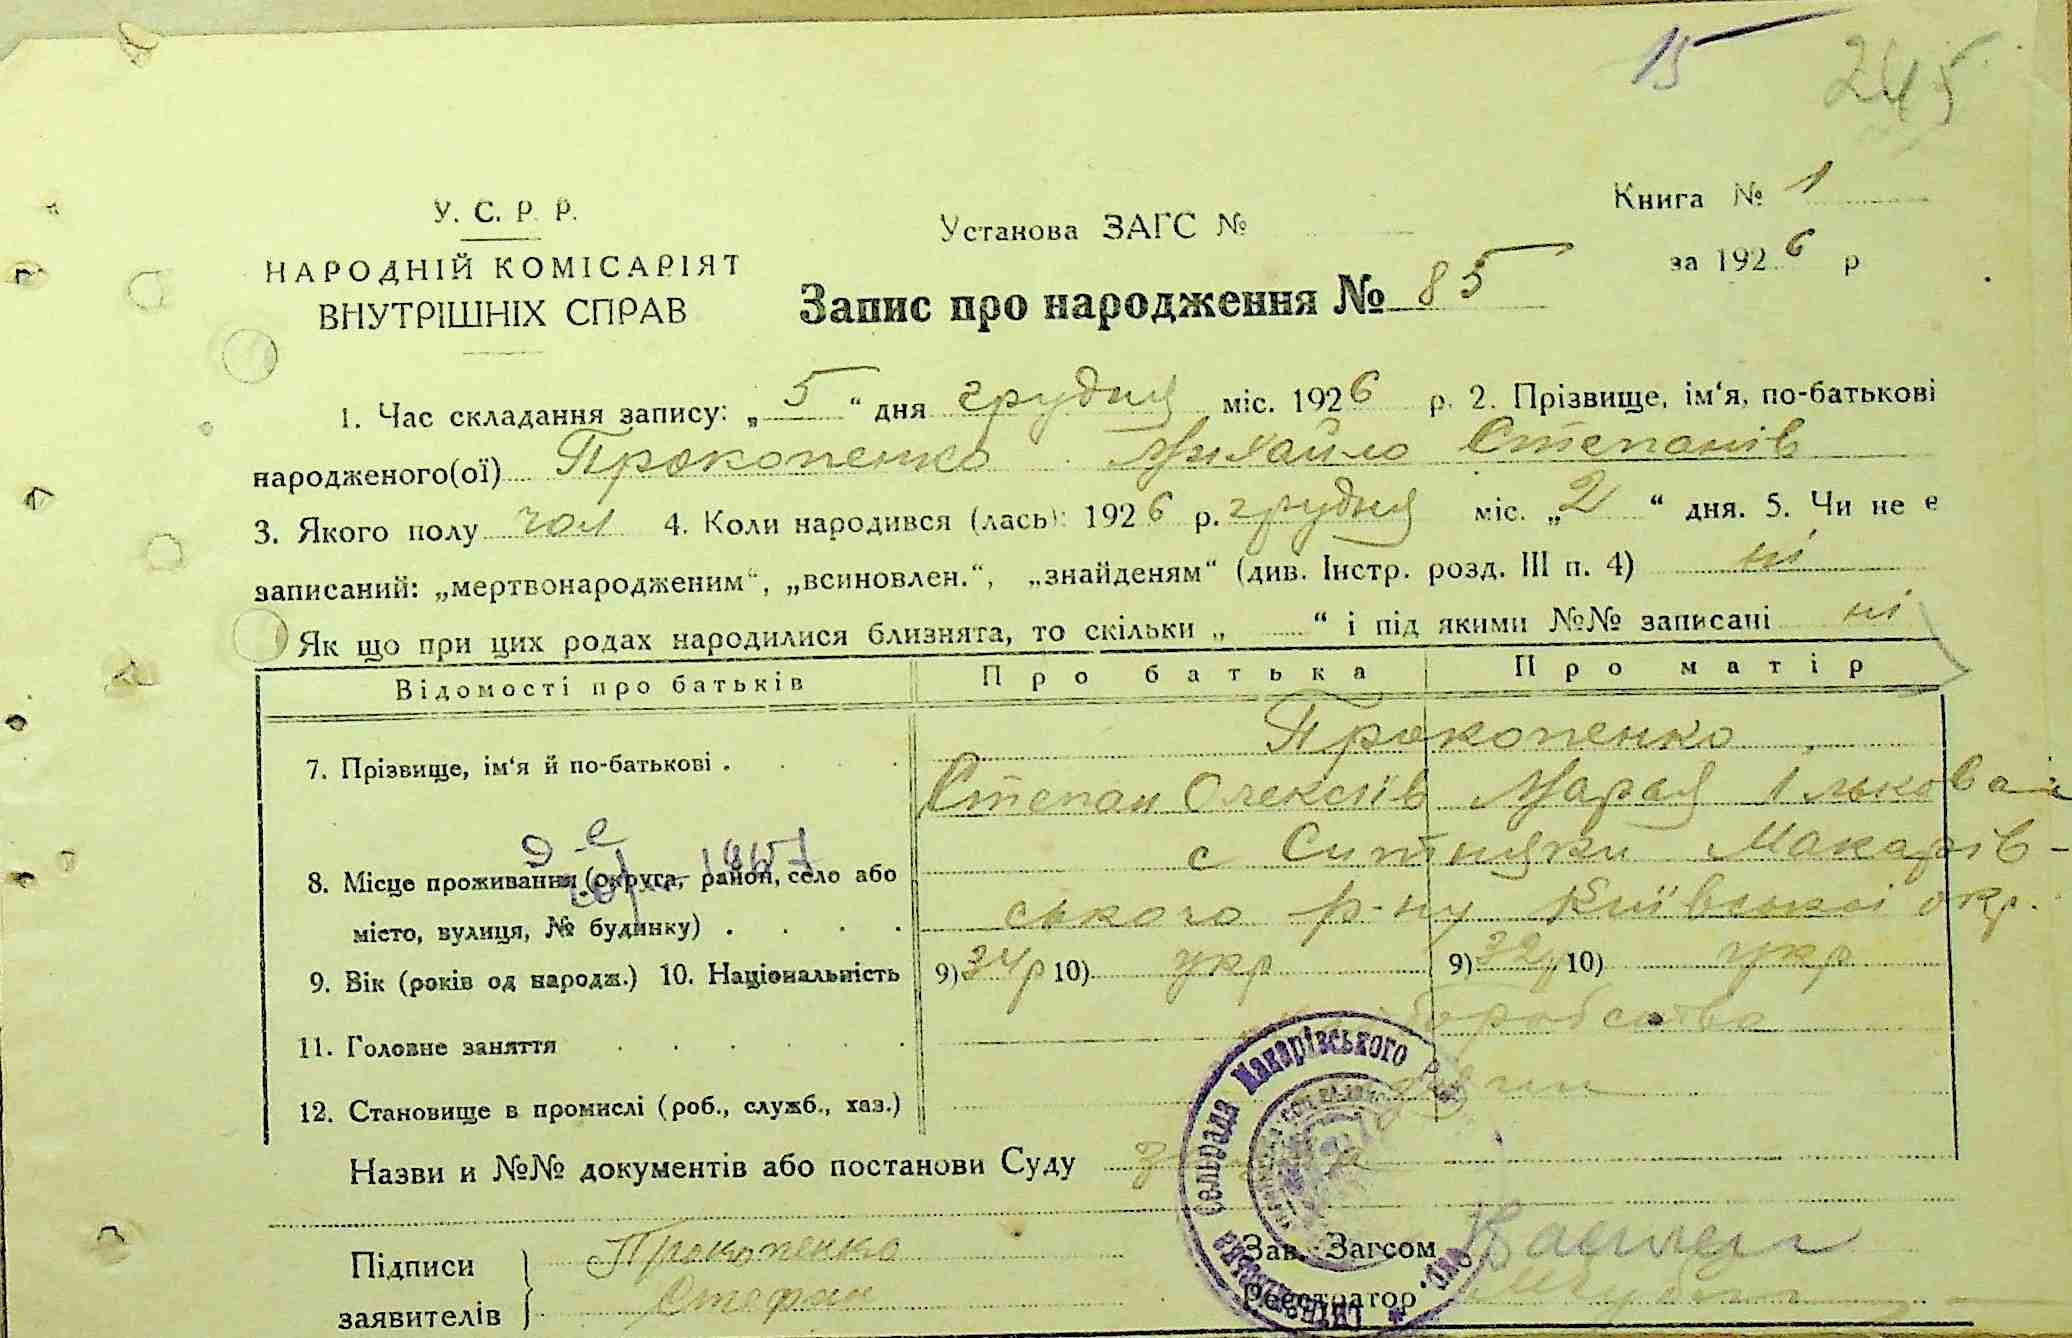 15 245
У. С. Р. Р.
НАРОДНІЙ КОМІСАРІЯТ
ВНУТРІШНІХ СПРАВ
Установа ЗАГС №
Книга № 1
за 1926 р
Запис про народження № 85
1. Час складання запису: „ 5 “ дня грудня міс. 1926 р. 2. Прізвище, ім‘я, по-батькові
народженого(ої) Прокопенко Михайло Степанів
3. Якого полу чол 4. Коли народився (лась): 1926 р. грудня міс. „ 2 “ дня. 5. Чи не є
записаний: „мертвонародженим“, „всиновлен.“, „знайденям“ (див. Інстр. розд. III п. 4) ні
Як що при цих родах народилися близнята, то скільки „ “ і під якими №№ записані ні
Відомості про батьків Про батька Про матір
7. Прізвище, ім‘я й по-батькові . Прокопенко
Степан Олексіїв МараяІлькова
8. Місце проживання (округа, район, село або с Ситняки Макарів-
місто, вулиця, № будинку) . ського р-ну Київської окр.
9. Вік (років од народж.) 10. Національність 9) 34р 10) укр 9) 32р 10) укр
11. Головне заняття
12. Становище в промислі (роб., служб., хаз.)
Назви и №№ документів або постанови Суду
Підписи
заявителів
Прокопенко
Степан
Зав. Загсом
Реєстратор
Сельрада Макарівського